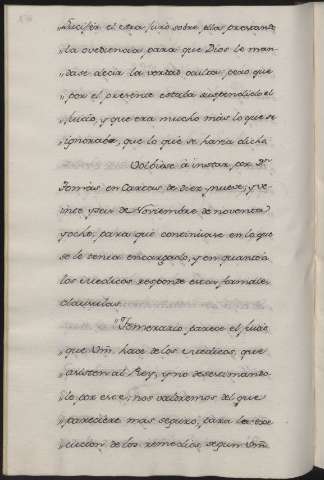 „Lucifer él está juro sobre ellas prestando
„la ovediencia para que Dios le man-
„dase decir la verdad oculta, pero que
„por el presente estaba suspendido el
„Juicio, y que era mucho más lo que se
„ignoraba, que lo que se havia dicho
Volbiose à instar, por Dn.
Tomás en Cartas de Diez y nueve, y ve-
inte y seis de Noviembre de noventa
y ocho, para que continuase en lo que
se le tenia encargado, y en quanto à
los Medicos responde estas formales
clausulas
„Temerario parece el juicio
„que Vm. hace de los Medicos, que
„asisten al Rey, y no desestimando-
„le por esto; nos valdremos del que
„pareciere mas seguro, para la exe-
„cucion de los remedios, segun Vm.